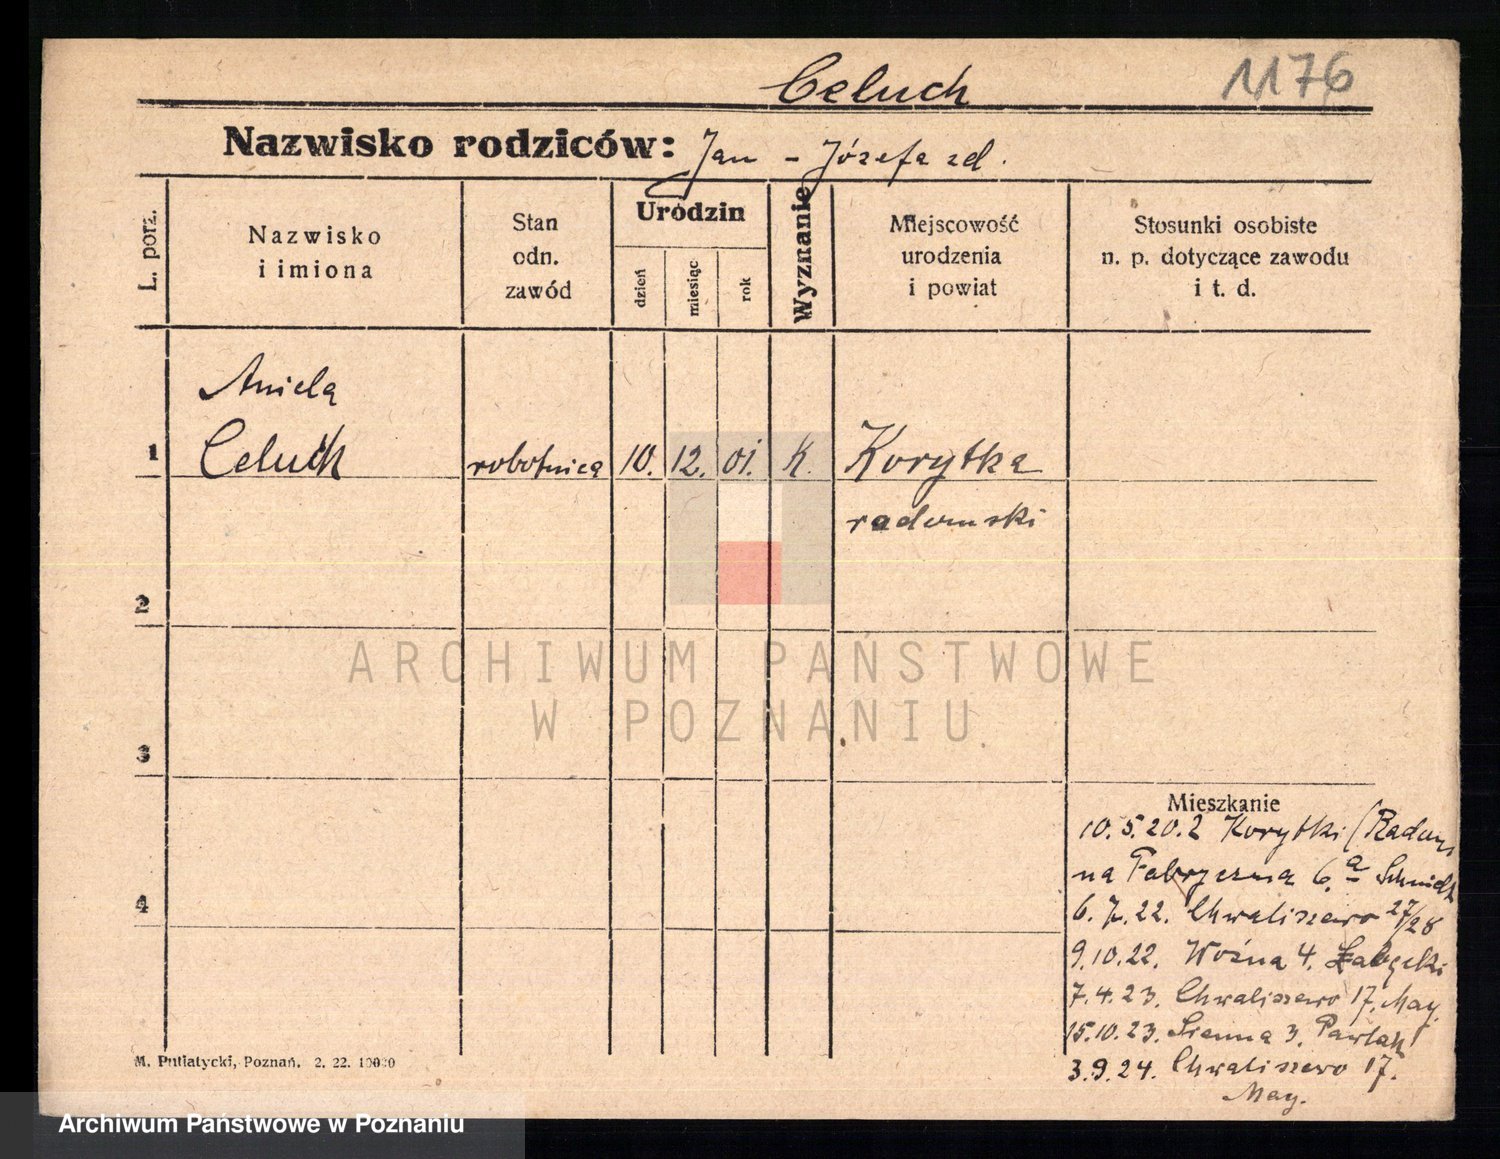 Celuch 1176
Nazwisko rodziców: Jan - Józefa zd.
L. porz.
Nazwisko
i imiona
Stan
odn.
zawód
Urodzin
dzień
miesiąc
rok
Wyznanie
Miejscowość
urodzenia
i powiat
Stosunki osobiste
n. p. dotyczące zawodu
i t. d.
Aniela
1 Celuch robotnica 10. 12. 01. K. Korytka
radomski
2
ARCHIWUM PAŃSTWOWE
W POZNANIU
3
Mieszkanie
10. 5. 20. z Korytki (Radoms
na Fabryczna 6 a Schmidt
4
6. 7. 22. Chwaliszewo 27/28
9. 10. 22. Woźna 4.
7. 4. 23. Chwaliszewo 17. May.
15. 10. 23. Sienna 3. Pawlak
3. 9. 24. Chwaliszewo 17.
May.
M. Putiatycki, Poznań. 2. 22.
Archiwum Państwowe w Poznaniu